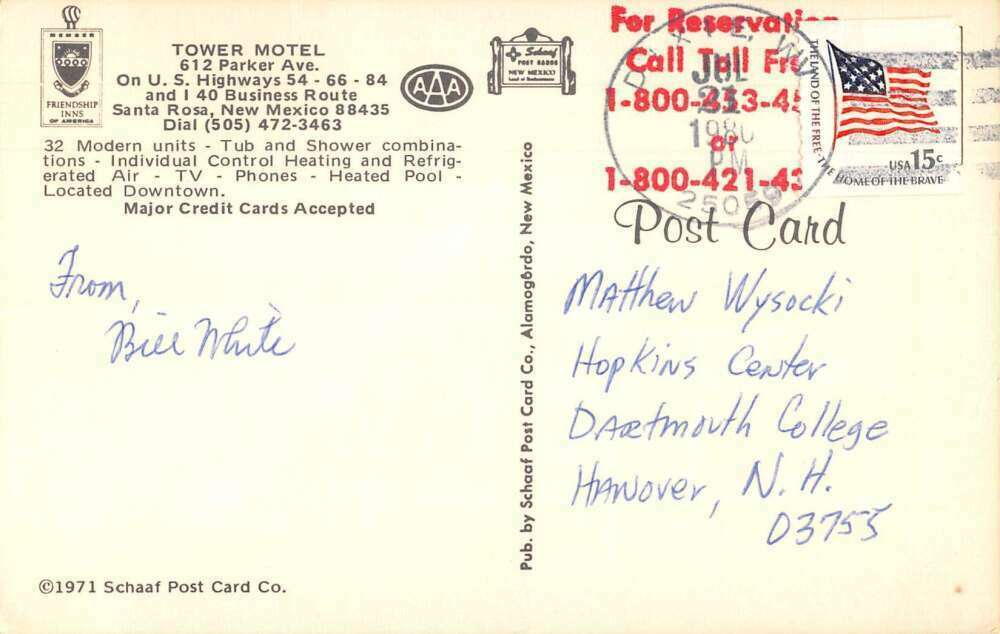 MEMBER
FRIENDSHIP
INNS
OF AMERICA
TOWER MOTEL
612 Parker Ave.
On U. S. Highways 54 - 66 - 84
and I 40 Business Route
Santa Rosa, New Mexico 88435
Dial (505) 472-3463
AAA
Schaaf
POST CARDS
NEW MEXICO
Land of Enchantment
32 Modern units - Tub and Shower combina-
tions - Individual Control Heating and Refrig-
erated Air - TV - Phones - Heated Pool -
Located Downtown.
Major Credit Cards Accepted
From,
Bill White
©1971 Schaaf Post Card Co.
Pub. by Schaaf Post Card Co., Alamogordo, New Mexico
For Reservati
Call Toll Fre
1-800-453-45
or
1-800-421-43
JUL
21
1980
PM
25059
THE LAND OF THE FREE · THE HOME OF THE BRAVE
USA 15c
Post Card
Matthew Wysocki
Hopkins Center
Dartmouth College
Hanover, N. H.
03755